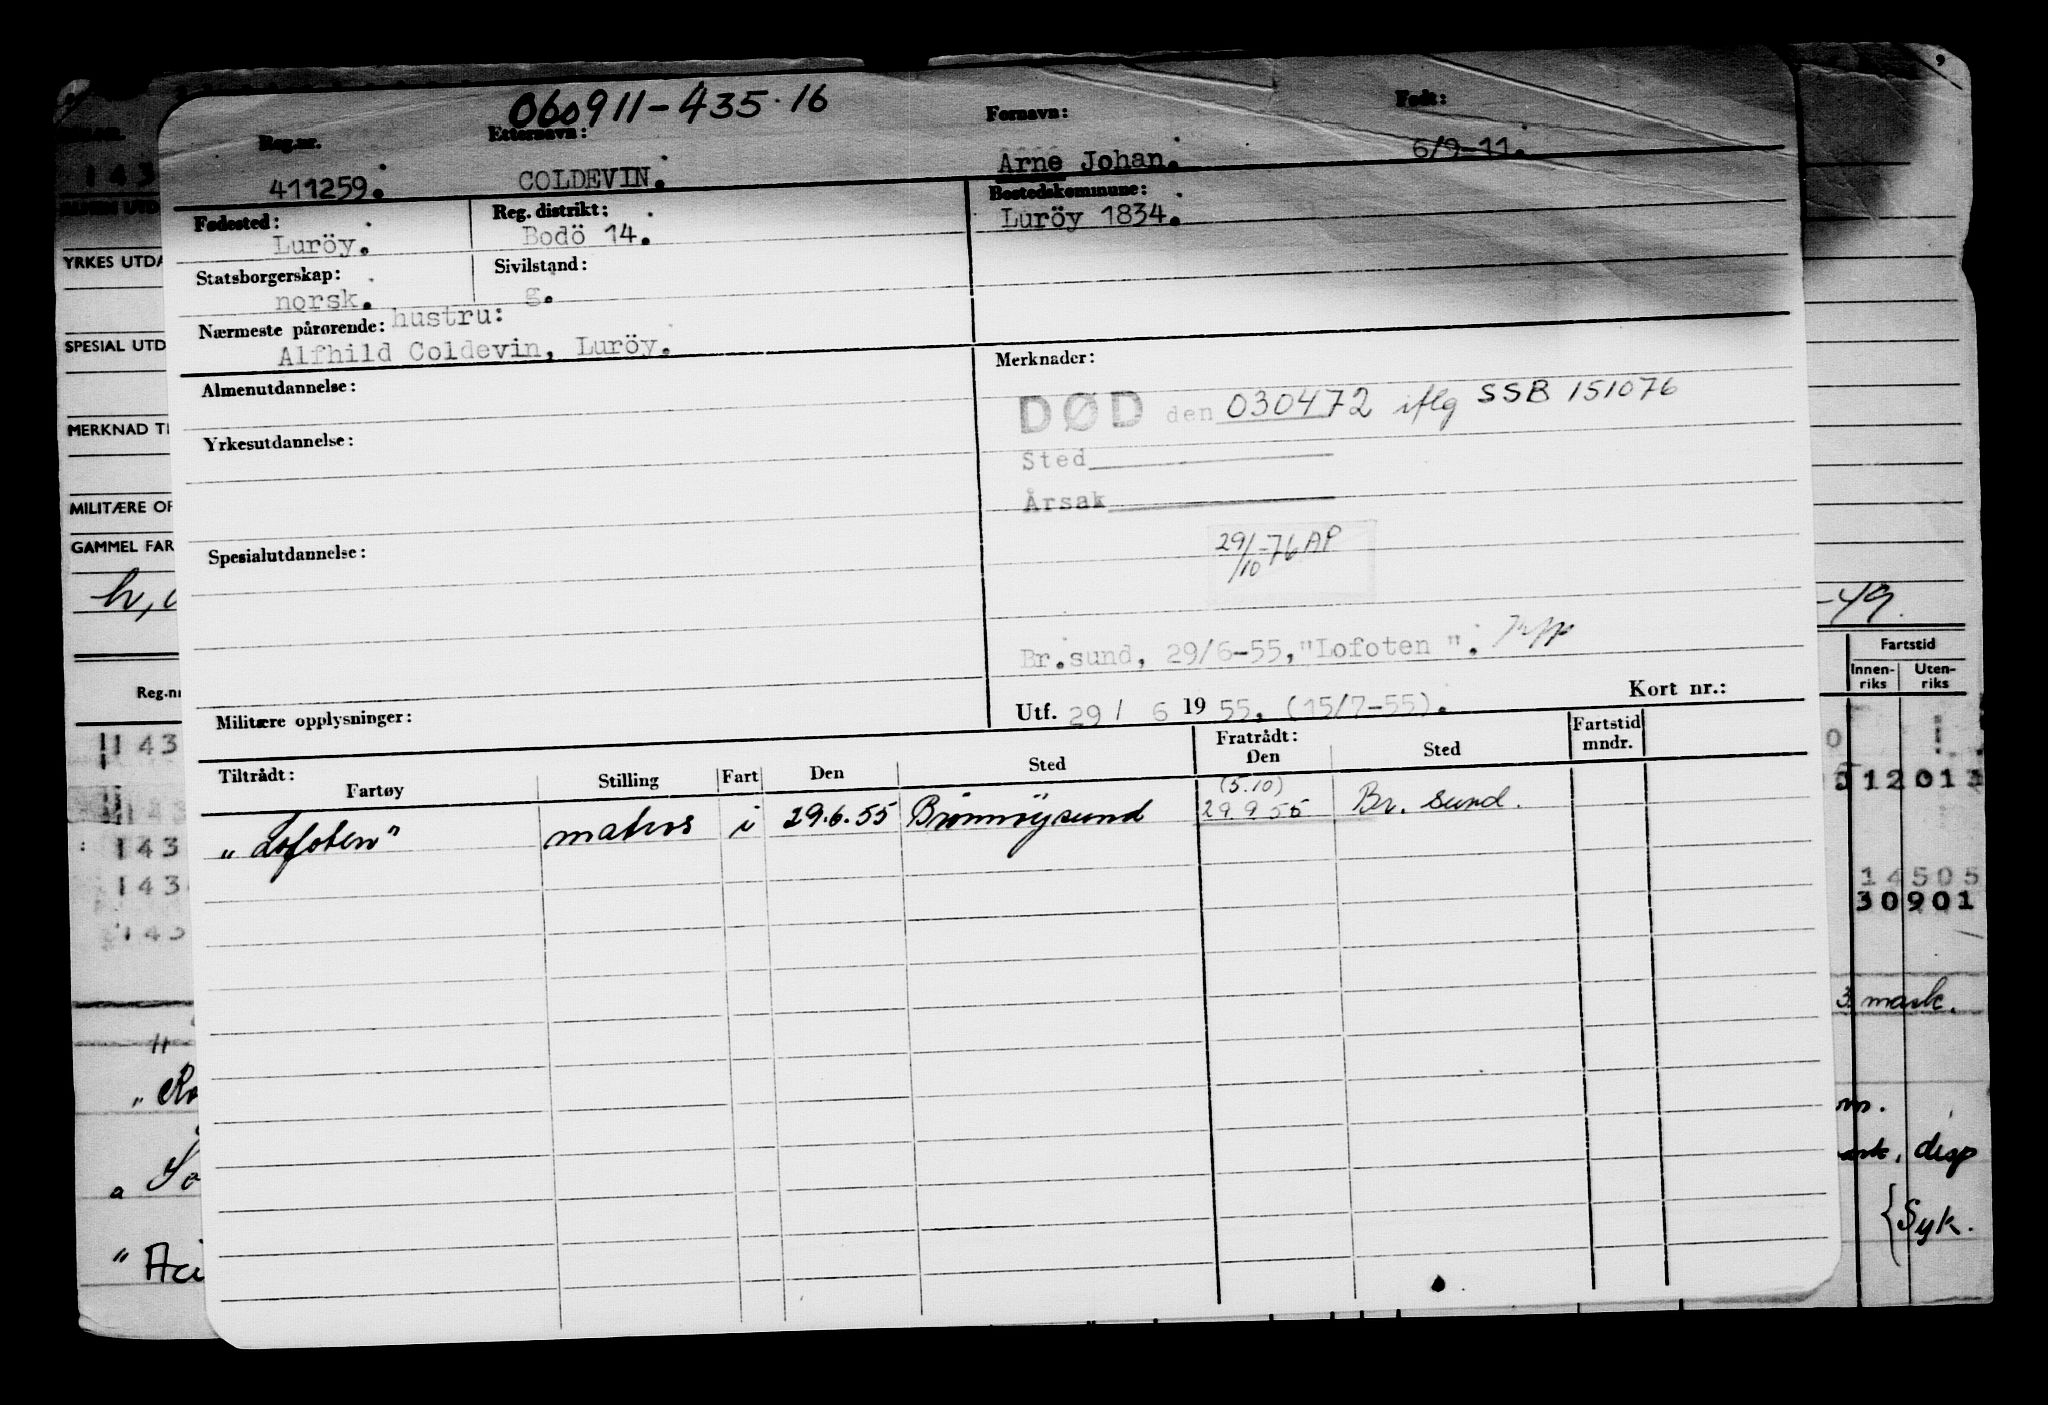 060911-435.16
Reg.nr. Etternavn: Fornavn: Født:
411259. COLDEVIN. Arne Johan. 6/9-11.
Fødested: Reg. distrikt: Bostedskommune:
Luröy. Bodö 14. Luröy 1834.
Statsborgerskap: Sivilstand:
norsk. g.
Nærmeste pårørende: hustru:
Alfhild Coldevin, Luröy.
Almenutdannelse:
Yrkesutdannelse:
Spesialutdannelse:
Militære opplysninger:
Merknader:
DØD den 030472 iflg SSB 151076
Sted
Årsak
29/10-76 AP
Br.sund, 29/6-55,"Lofoten ".
Utf. 29/ 6 19 55. (15/7-55). Kort nr.:
Tiltrådt: Fratrådt: Fartstid
Fartøy Stilling Fart Den Sted Den Sted mndr.
(5.10)
"Lofoten" matros i 29.6.55 Brönnöysund 29.9 55 Br. sund.
143
YRKES UTDA
SPESIAL UTD
MERKNAD TI
MILITÆRE OP
GAMMEL FAR
h,
Reg.nr
143
143
143
143
143
"
" Ro
" So
" Aci
-49.
Fartstid
Innen-riks Uten-riks
12013
14505
30901
3 mask.
m.
ask, disp
{Syk.